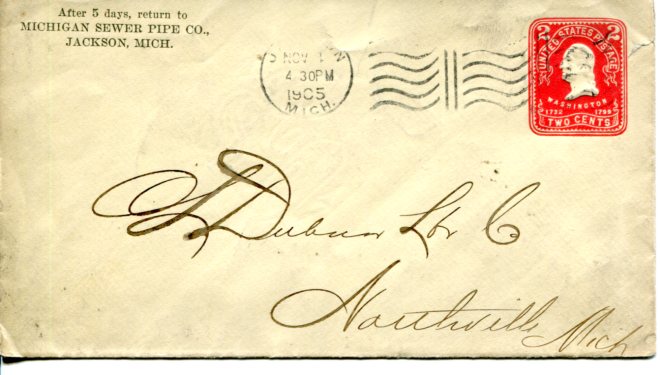 After 5 days, return to
MICHIGAN SEWER PIPE CO.,
JACKSON, MICH.
NOV 1
4 30PM
1905
MICH.
2 UNITED STATES POSTAGE 2
WASHINGTON
1732 1799
TWO CENTS
Lbr Co
Northville Mich